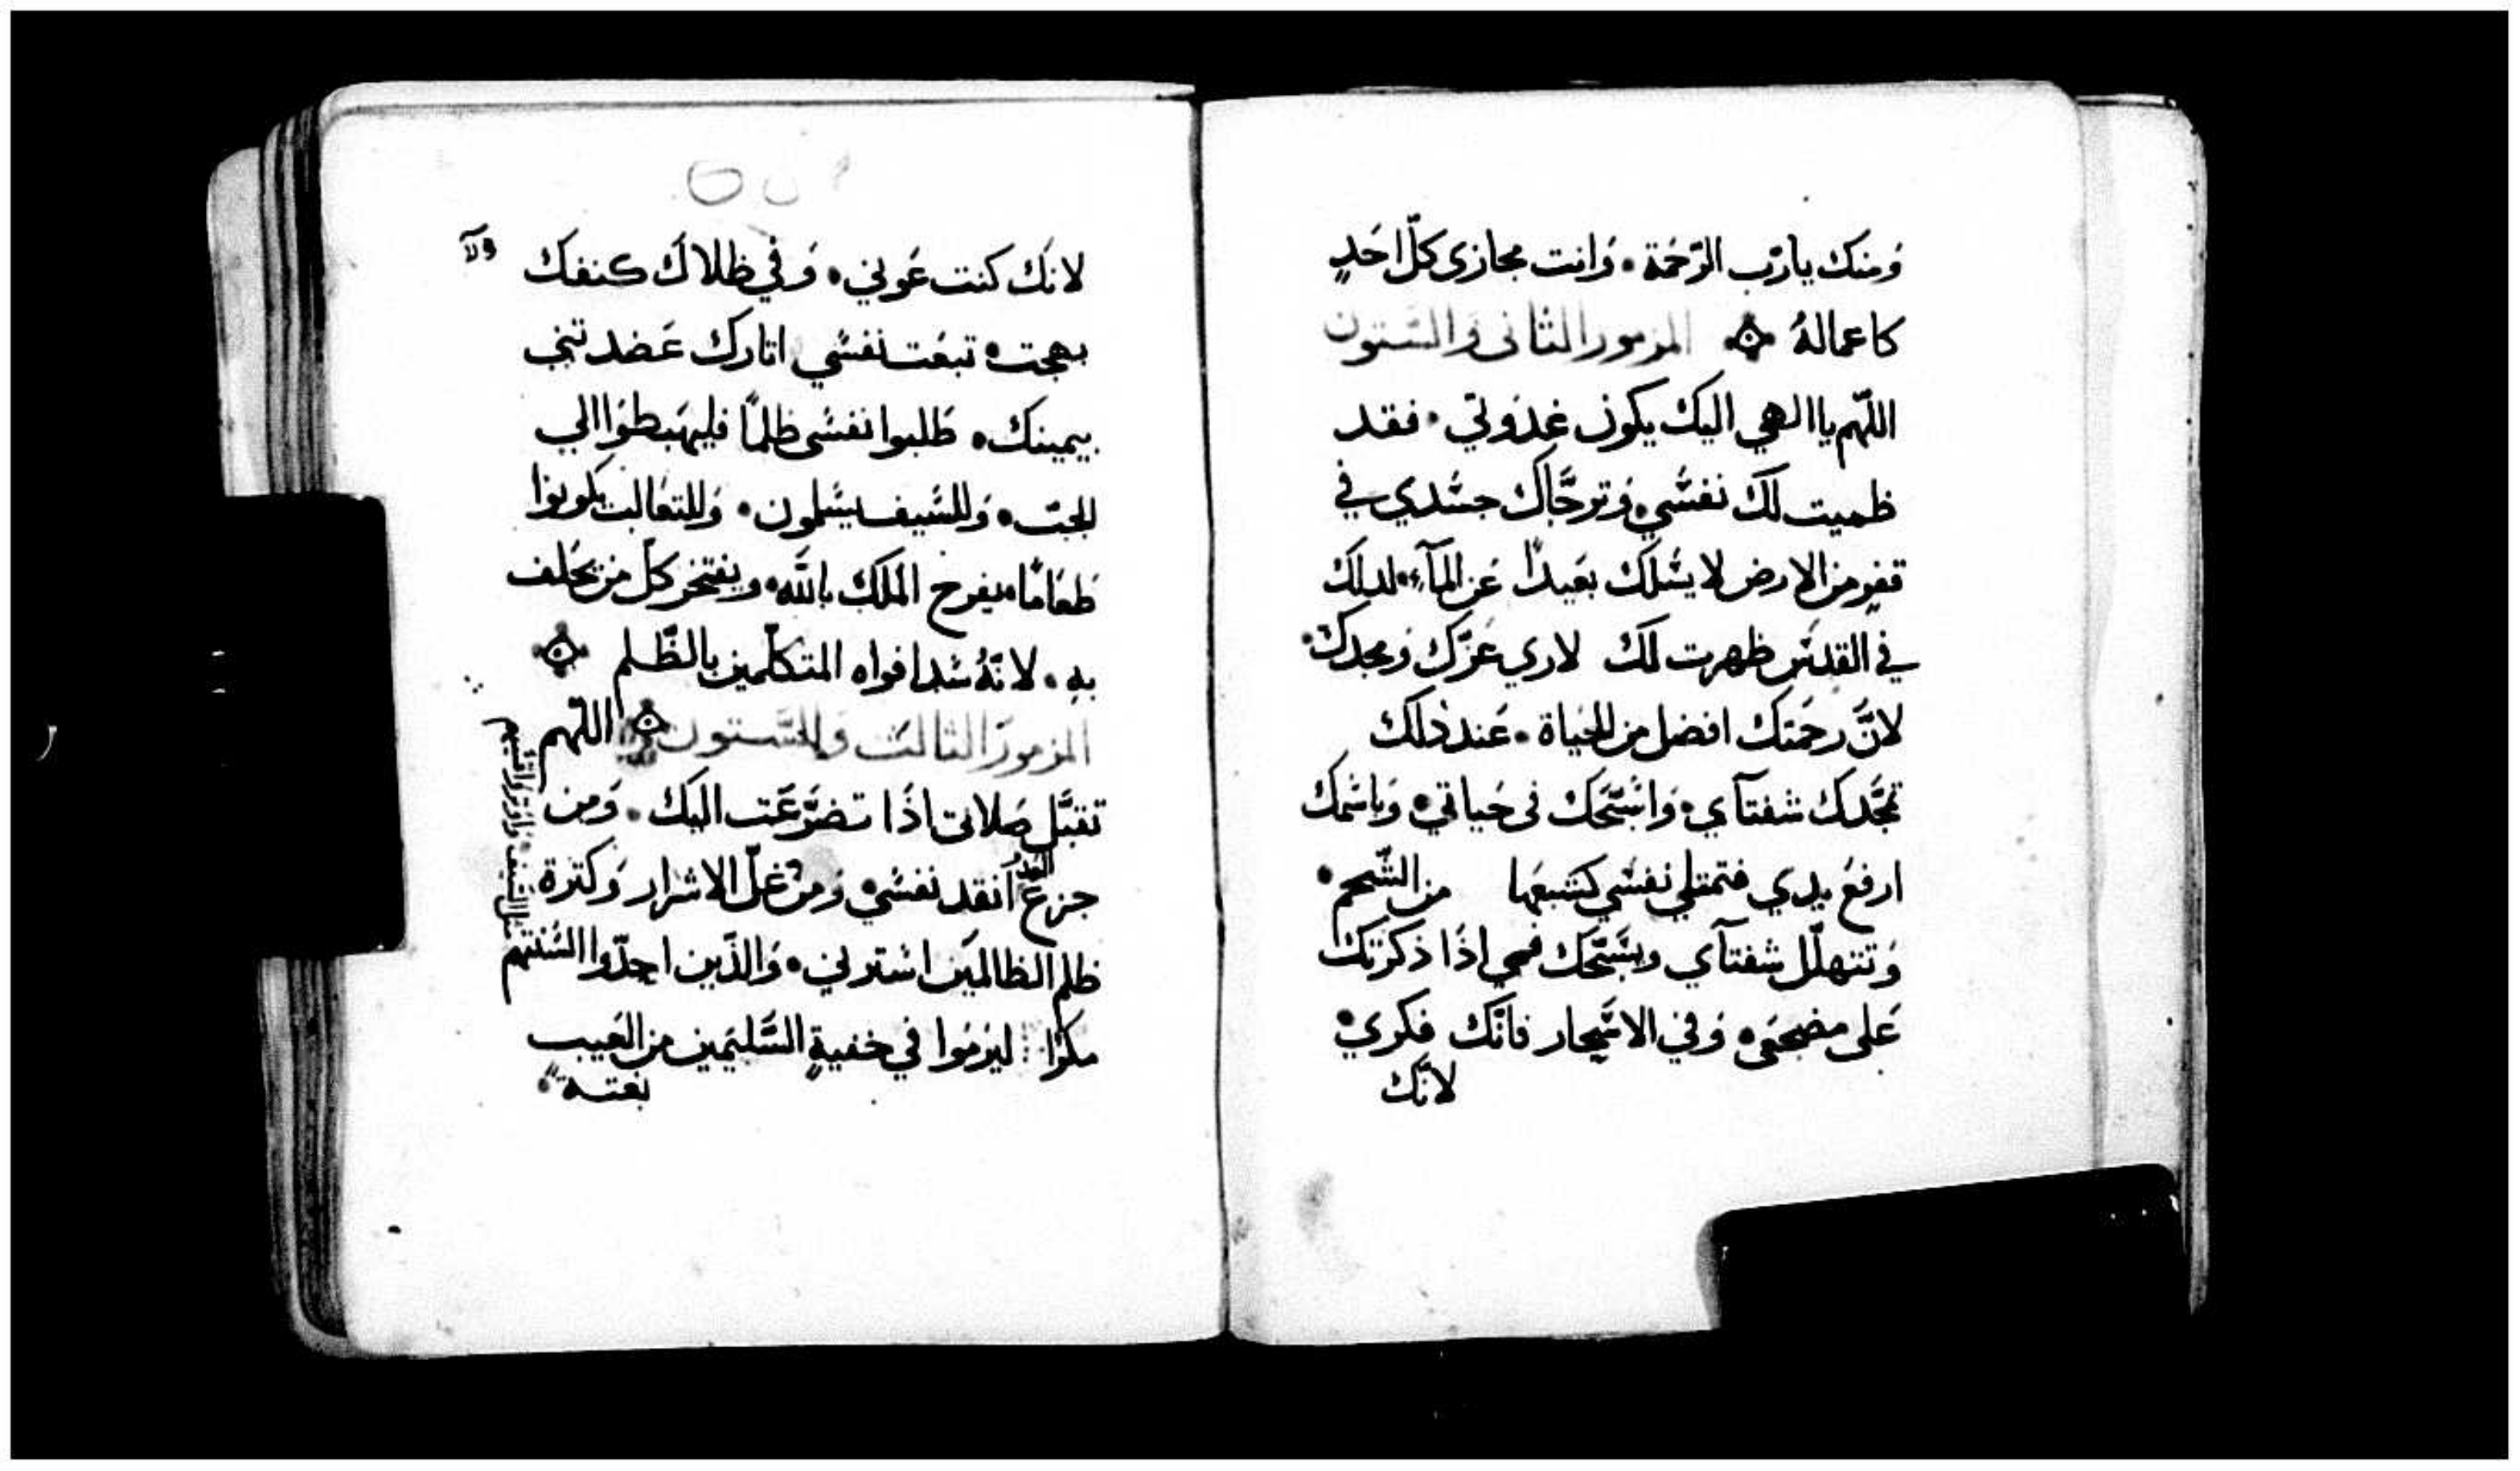 وَمنك يا ربّ الرّحَمة ۰ وَانت مجازى كلّ احَدٍ
كاعمالهُ المزمور الثانى وَالسّتون
اللّهم يا الهي اليك يكون غدوتي ۰ فقد
ظميت لكَ نفسُي وَترجَّاك جسُدي في
قفرٍ من الارض لا يسُلك بعَيدًا عَن المآء ۰ لدلك
في القدسُ ظهرت لكَ لارى عَزّك وَمجدك ۰
لانَّ رحمَتك افضل من الحَياة ۰ عَند ذلك
تمجَّدك شفتآي ۰ وَاسُبّحَك فى حَياتي ۰ وَباسُمك
ارفعُ يدي فتمتلي نفسُي كتشبعَها من الشّحم ۰
وَتتهلّل شفتآي ويسُبّحَك فمي اذًا ذكرتك
عَلى مضجعَى ۰ وَفي الاسُحار فانّك فكري ۰
لانّك
لانَك كنت عَوني ۰ وَفي ظلالك كنفك
بهجت ۰ تبعَت نفسُي اتارك عَضدتني
بيمينك ۰ طَلبوا نفسُى ظلمًا فليهَبطوَا الي
الجبّ ۰ وَللسَيف يسُلمون ۰ وَللتعَالب يكونوا
طَعَامًا ۰ يفرح المَلك بالله ۰ ويفتخر كلّ من يحَلف
بهِ ۰ لانّهُ سُد افواه المتكلّمين بالظّلم
المزمورَ الثالث وَالسَّتون اللّهم
تقبَّل صَلاتى اذًا تضرَّعَت اليك ۰ وَمن
جزعَ العدوّ اَنقد نفسُي ۰ وَمن غلّ الاشرار وَكترة
ظلم الظالميَن استرني ۰ وَالذَين احدّوا السُنتهم
مثل السَّيف ۰ وَاوترُوا قسُيهم
مكرًا ليَرمَوا في خفيةٍ السَّليَمين من العَيب
بغتهً ۰